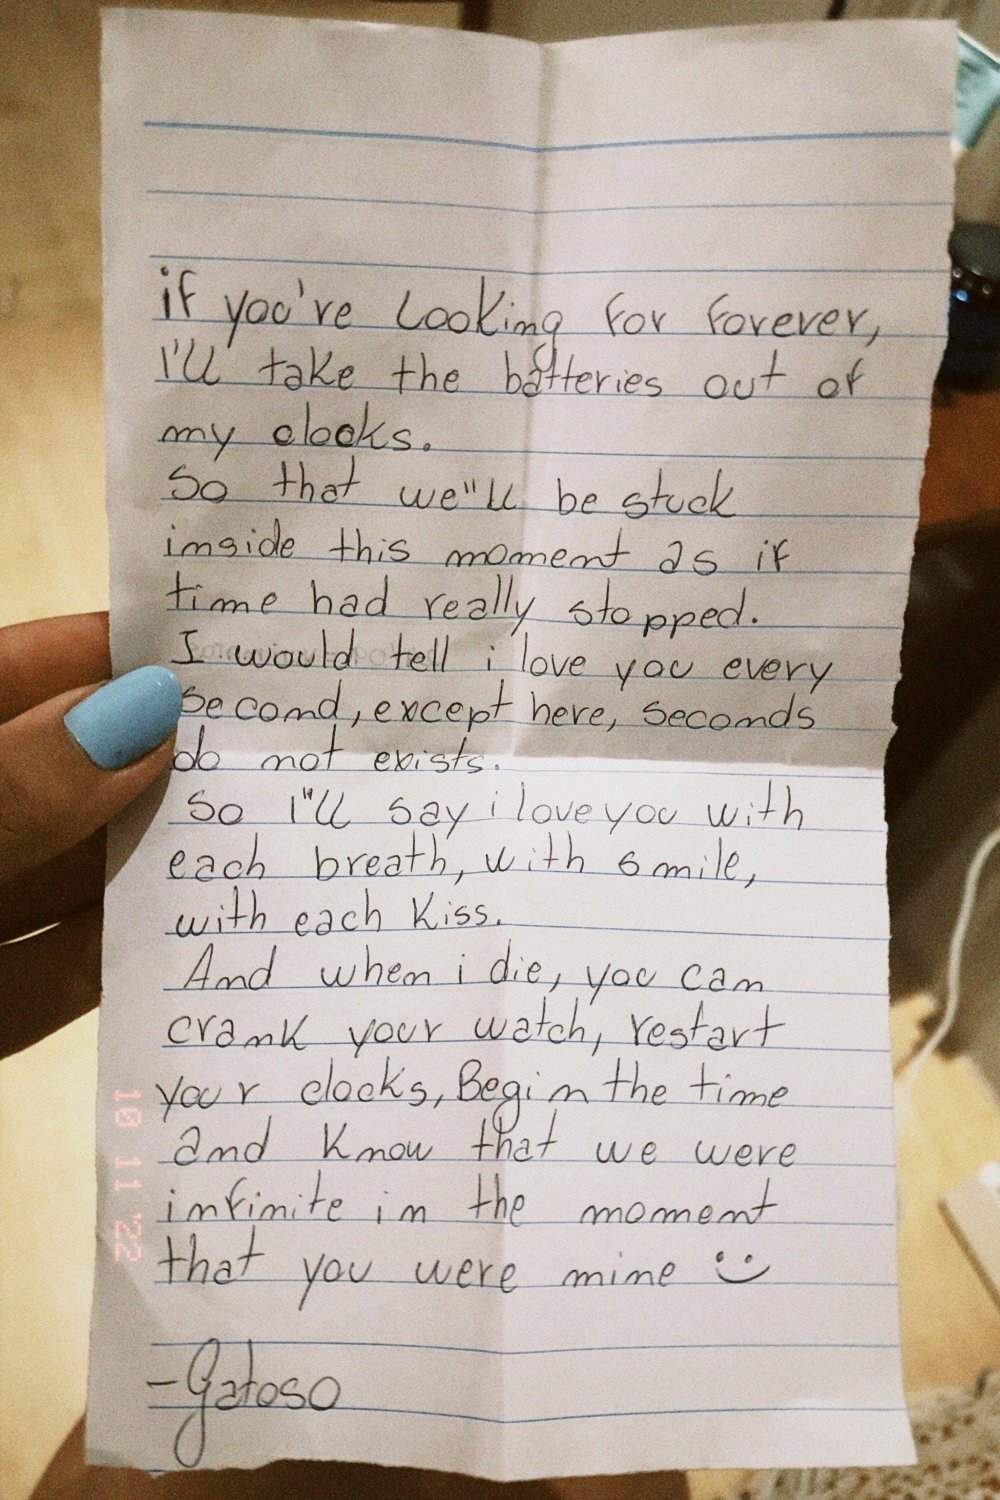 if you've looking for forever,
I'll take the batteries out of
my clocks.
So that we"ll be stuck
inside this moment as if
time had really stopped.
I would tell i love you every
second, except here, seconds
do not exists.
So I"ll say i love you with
each breath, with smile,
with each kiss.
And when i die, you can
crank your watch, restart
your clocks, Begin the time
and know that we were
infinite in the moment
that you were mine
-Gatoso
10 11 '22